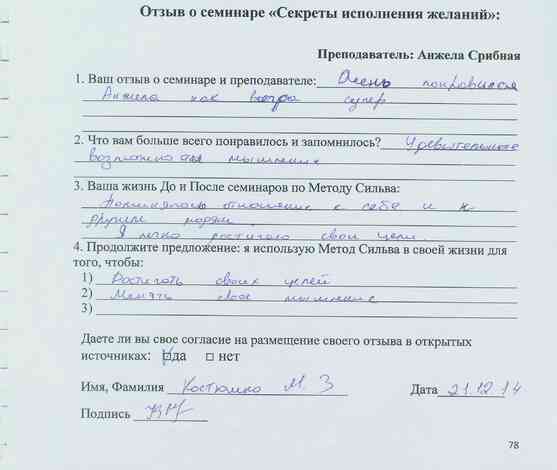 Отзыв о семинаре «Секреты исполнения желаний»:
Преподаватель: Анжела Срибная
1. Ваш отзыв о семинаре и преподавателе: Очень понравился
Анжела как всегда супер
2. Что вам больше всего понравилось и запомнилось? Удивительное
мышления
3. Ваша жизнь До и После семинаров по Методу Сильва:
отношение к себе и к
другим людям.
Я легко достигаю свои цели.
4. Продолжите предложение: я использую Метод Сильва в своей жизни для
того, чтобы:
1) Достигать своих целей
2) Менять свое мышление
3)
Даете ли вы свое согласие на размещение своего отзыва в открытых
источниках: ☑да □ нет
Имя, Фамилия Костюшко М. З
Дата 21.12.14
Подпись
78